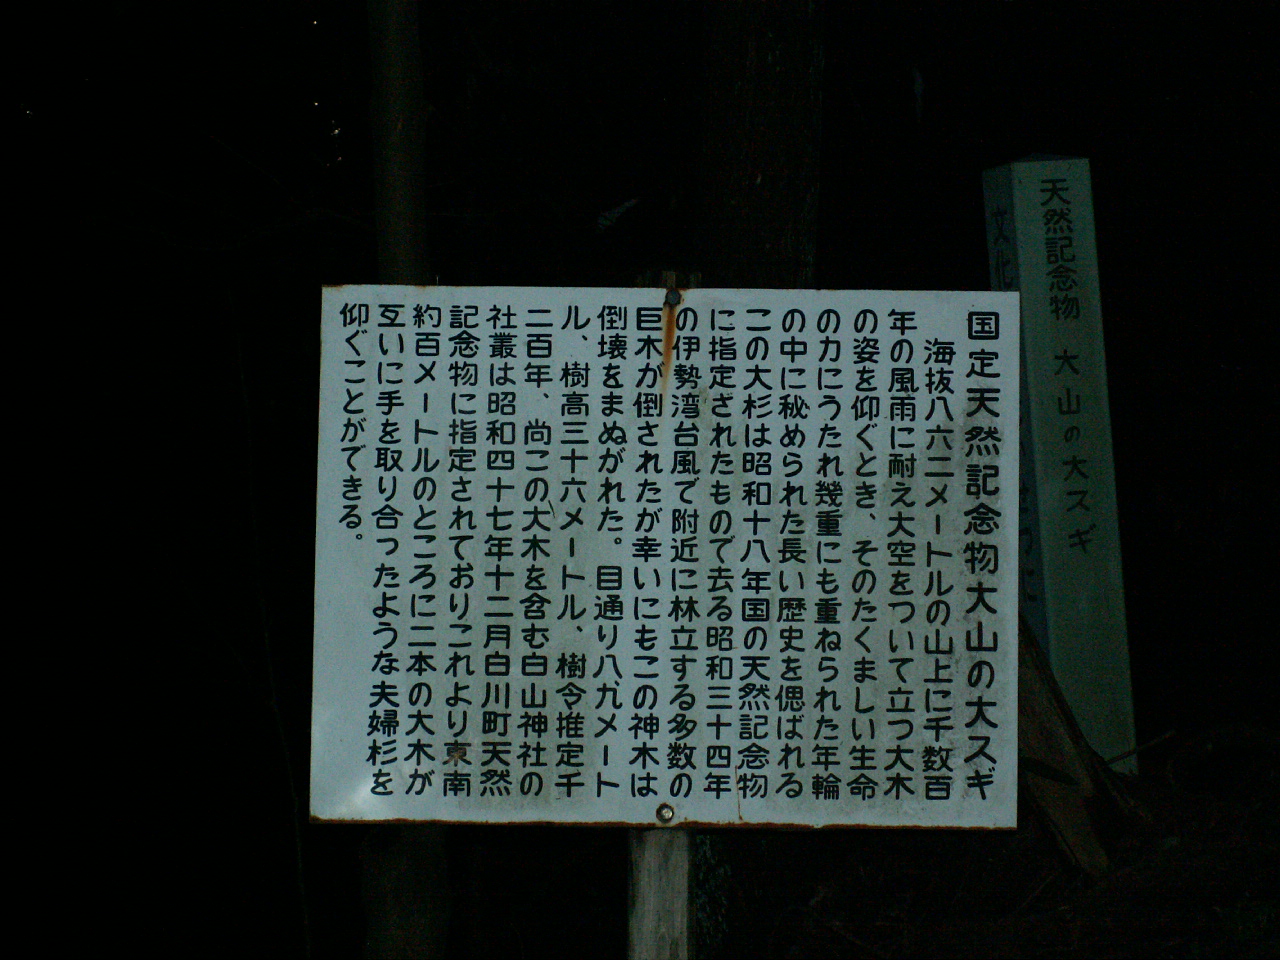 国定天然記念物大山の大スギ
海抜八六二メートルの山上に千数百
年の風雨に耐え大空をついて立つ大木
の姿を仰ぐとき、そのたくましい生命
の力にうたれ幾重にも重ねられた年輪
の中に秘められた長い歴史を偲ばれる
この大杉は昭和十八年国の天然記念物
に指定されたもので去る昭和三十四年
の伊勢湾台風で附近に林立する多数の
巨木が倒されたが幸いにもこの神木は
倒壊をまぬがれた。目通り八、九メート
ル、樹高三十六メートル、樹令推定千
二百年、尚この大木を含む白山神社の
社叢は昭和四十七年十二月白川町天然
記念物に指定されておりこれより東南
約百メートルのところに二本の大木が
互いに手を取り合ったような夫婦杉を
仰ぐことができる。
天然記念物 大山の大スギ
文化